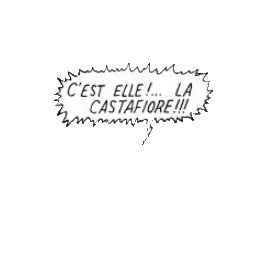 C'EST ELLE!... LA
CASTAFIORE!!!